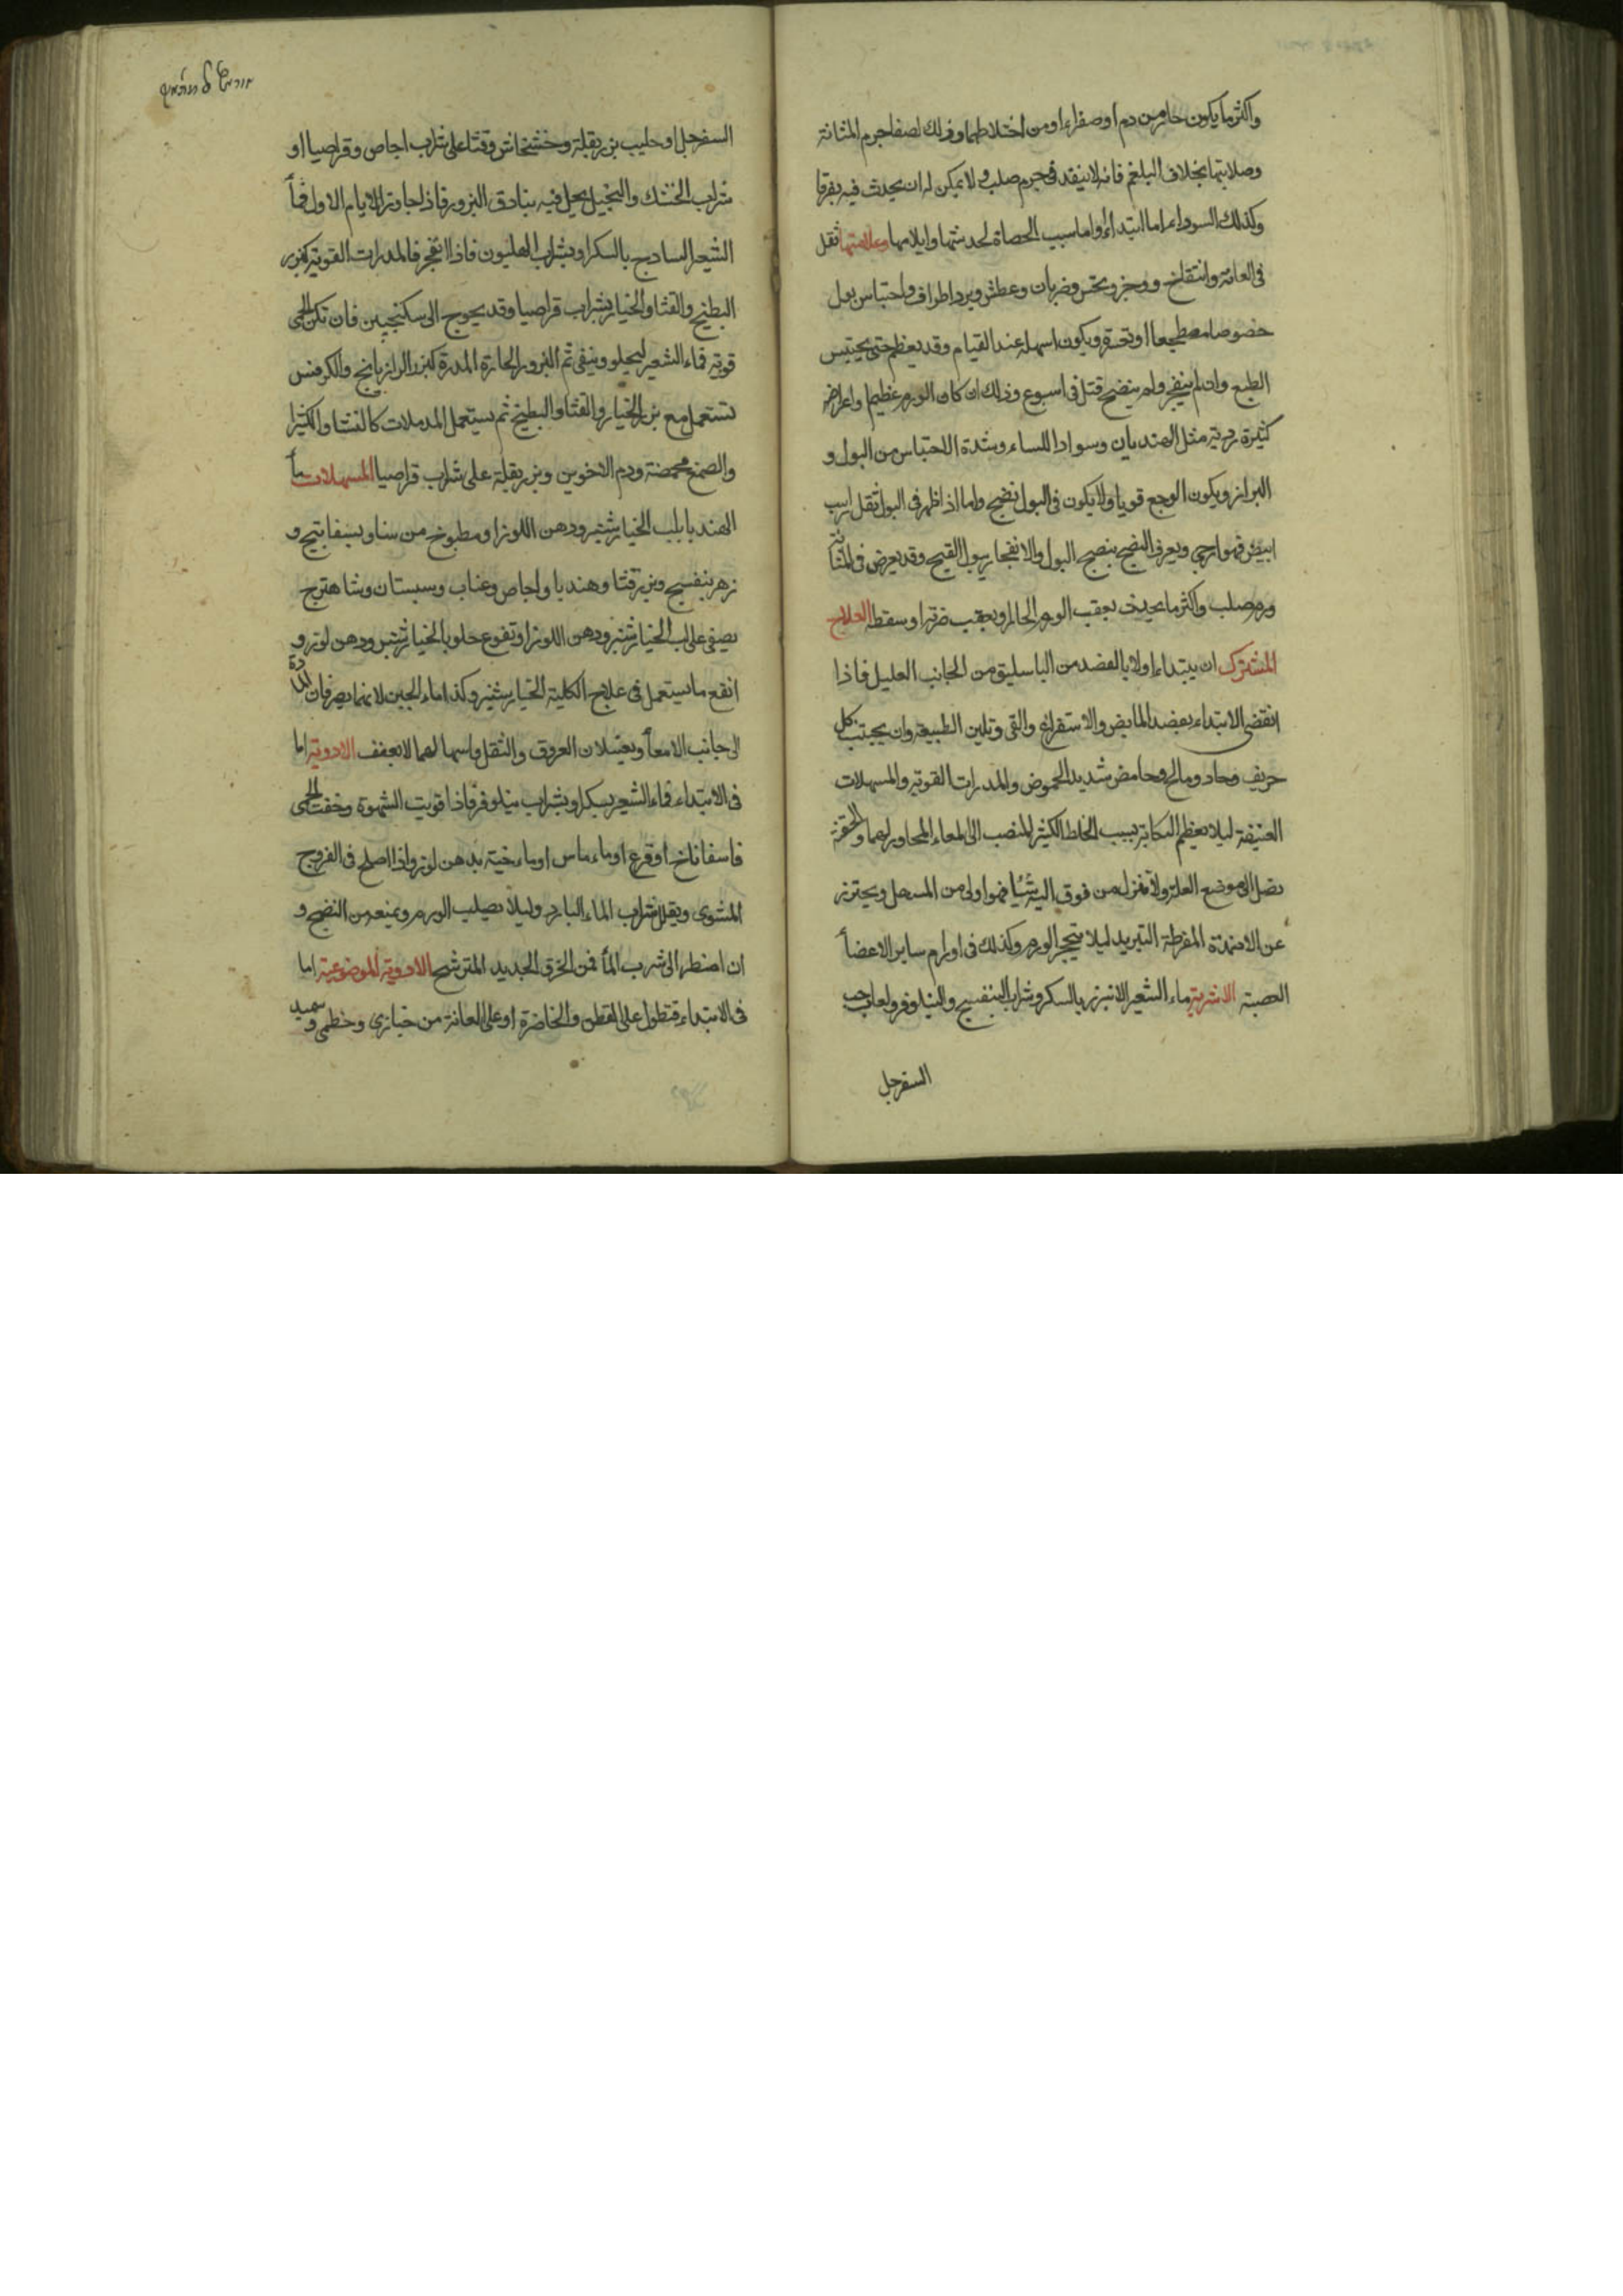 واكثر ما يكون حار من دم او صفراء او من اختلاطهما وذلك لصفا جرم المثانة
وصلابتها بخلاف البلغم فانه لا ينفد في جرم صلب ولا يمكن له ان يحدث فيه تفرقا
وكذلك السوداء اما ابتداء او اما سبب الحصاة لخدشتها وايلامها وعلامتها ثقل
في العانة وانتفاخ ووخز ونخس وضربان وعطش وبرد اطراف واحتباس بول
خصوصا مضطجعا او تحسة ويكون اسهله عند القيام وقد يعظم حتى يحتبس
الطبع وان لم ينفجر ولم ينضج قتل في اسبوع وذلك ان كان الورم عظيما واعراضه
كثيرة ردية مثل الهنديان وسواد اللساء وشدة الاحتباس من البول و
البراز ويكون الوجع قويا ولا يكون في البول نضج واما اذا ظهر في البول ثقل راسب
ابيض فهو ارجى ويعرف النضج بنضج البول والانفجار ببول القيح وقد يعرض في المثانة
ورم صلب واكثر ما يحدث بعقب الورم الحار او بعقب ضربة او سقطة العلاج
المشترك ان يبتداء اولا بالفصد من الباسليق من الجانب العليل فاذا
انقضى الابتداء بفصد المابض والاستفراغ والقي وتليين الطبيعة وان يجتنب كل
حريف وحاد ومالح وحامض شديد الحموض والمدرات القوية والمسهلات
العنيفة ليلا يعظم النكاية بسبب الخلط الكثير المنصب الى المعاء المجاور لهما والحقنة
تصل الى موضع العلة ولا تنزل من فوق اليه شيا فهو اولى من المسهل ويحترز
عن الاضمدة المفرطة التبريد ليلا يتحجر الورم وكذلك في اورام ساير الاعضأ
العصبية الاشربة ماء الشعير الانبزر بالسكر وشراب البنفسج والنيلوفر ولعاب حب
السفرجل
السفرجل او حليب بزر بقلة وخشخاش وقثا على شراب اجاص وقراصيا او
شراب الخشك والنجيل يحل فيه بنادق البزور فاذا جاوز الايام الاول فمأ
الشعير السادج بالسكر او بشراب الهليون فاذا انفجر فالمدرات القوية كبزر
البطيخ والقثا والخيار بشراب قراصيا وقد يحوج الى سكنجبين فان تكن الحمى
قوية فماء الشعير ليجلو وينقي ثم البزور الحارة المدرة كبزر الرازيانج والكرفس
تستعمل مع بزر الخيار والقثا والبطيخ ثم يستعمل المدملات كالنشا والكثيرا
والصمغ محمضة ودم الاخوين وبزر بقلة على شراب قراصيا المسهلات مأ
الهندبا بلب الخيار شنبر ودهن اللوز او مطبوخ من سنا وبسفايج و
زهر بنفسج وبزر قثا وهندبا واجاص وعناب وسبستان وشاهترج
يصفى على لب الخيار شنبر ودهن اللوز او نقوع حلو بالخيار شنبر ودهن لوز و
انفع ما يستعمل في علاج الكلية الخيار شنبر وكذا ماء الجبن لانهما يصرفان المادة
الى جانب الامعأ ويغسلان العروق والثقل واسهالهما لا بعنف الادوية اما
في الابتداء فماء الشعير بسكر او بشراب نيلوفر فاذا قويت الشهوة وخفت الحمى
فاسفاناخ او قرع او ماء ماس او ماء خية بدهن لوز واذا اصلح في الفروج
المشوى ويقلل شراب الماء البارد وليلا يصلب الورم ويمنعه من النضج و
ان اضطر الى شرب المأ فمن الخزف الجديد المترشح الادوية الموضوعية اما
في الابتداء فتطول على القطن والخاضرة او على العانة من خبازي وخطمي وسميد